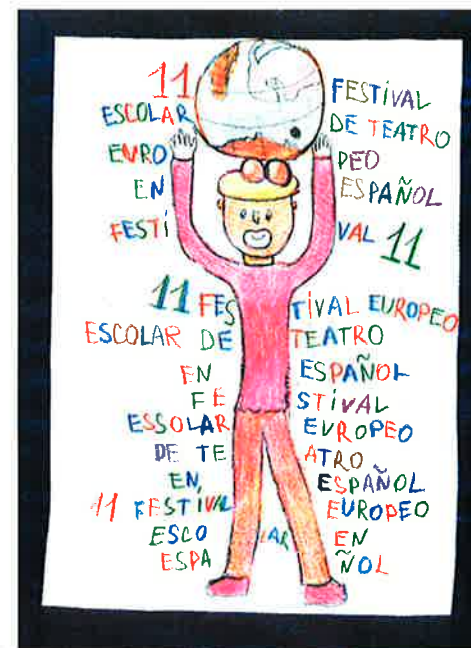 11 FESTIVAL
ESCOLAR DE TEATRO
EURO PEO
EN ESPAÑOL
FESTI VAL 11
11 FES TIVAL EUROPEO
ESCOLAR DE TEATRO
EN ESPAÑOL
FE STIVAL
ESSOLAR EUROPEO
DE TE ATRO
EN ESPAÑOL
11 FESTIVAL EUROPEO
ESCO LAR EN
ESPA ÑOL